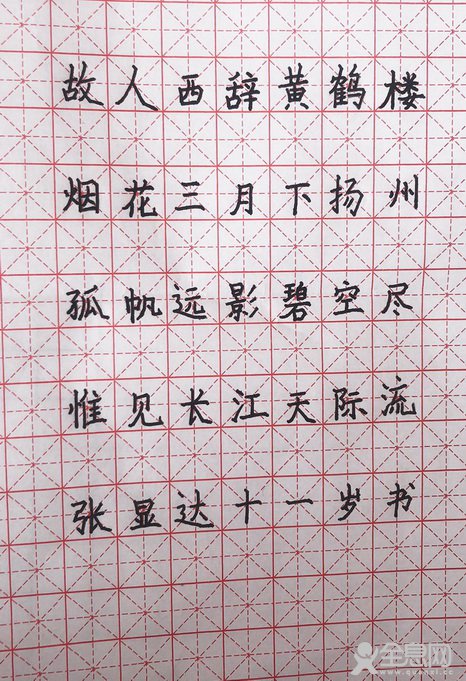 故人西辞黄鹤楼
烟花三月下扬州
孤帆远影碧空尽
惟见长江天际流
张显达十一岁书
全息网
www.quanxi.cc